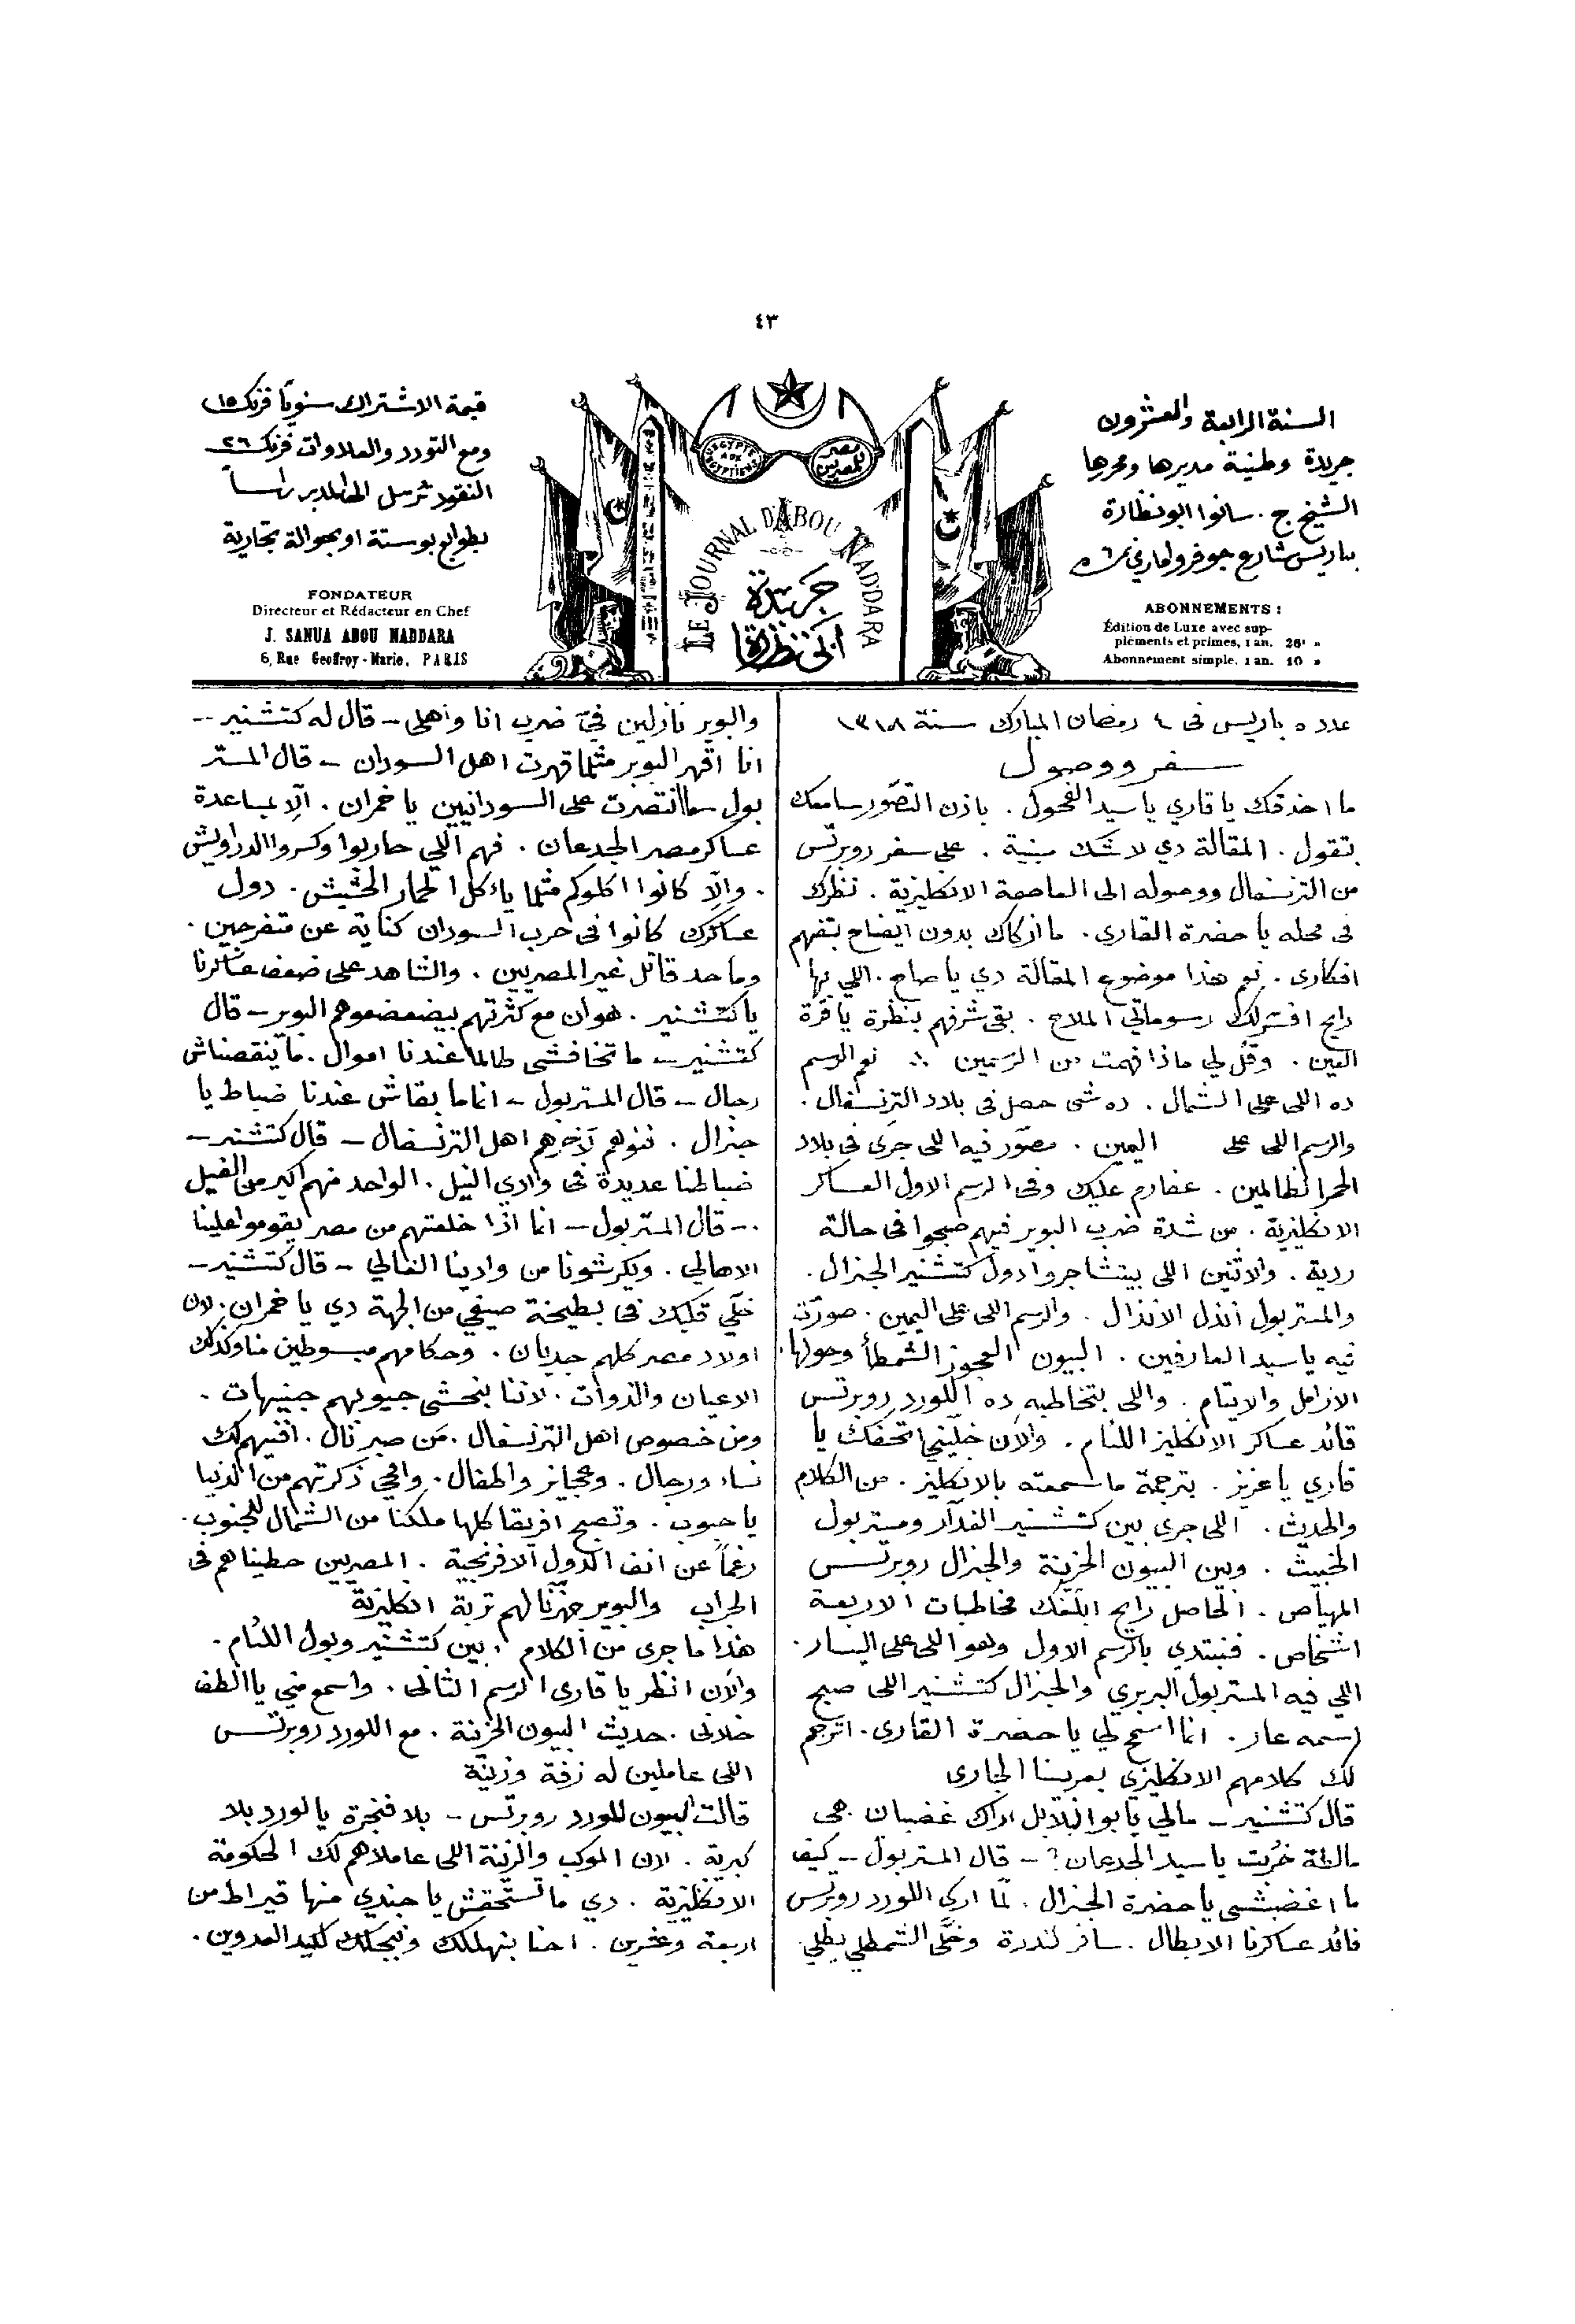 ٤٣
السنة الرابعة والعشرون
جريدة وطنية مديرها ومحررها
الشيخ ج. سانوا ابو نظارة
بباريس شارع جوفروا ماري نمرة ٦
ABONNEMENTS :
Édition de Luxe avec sup-
pléments et primes, 1 an. 26f »
Abonnement simple. 1 an. 10 »
EGYPTE AUX EGYPTIENS
مصر للمصريين
LE JOURNAL D'ABOU NADDARA
جريدة
ابي نظارة
قيمة الاشتراك سنويًا فرنك ١٥
ومع التورد والعلاوات فرنك ٢٦
النقود ترسل الى المدير راساً
بطوابع بوستة او بحوالة تجارية
FONDATEUR
Directeur et Rédacteur en Chef
J. SANUA ABOU NADDARA
6, Rue Geoffroy-Marie, PARIS
عدد ٥ باريس فى ٤ رمضان المبارك سنة ١٣١٨
سفر ووصول
ما احذقك يا قاري يا سيد الفحول . باذن التصور سامعك
تقول . المقالة دي لا شك مبنية . على سفر روبرتس
من الترنسفال ووصوله الى العاصمة الانكليزية . نظرك
فى محله يا حضرة القارى . ما ازكاك بدون ايضاح بتفهم
افكارى . نعم هذا موضوع المقالة دي يا صاح . اللي بها
رايح افسر لك رسوماتي الملاح . بقى شرفهم بنظرة يا قرة
العين . وقل لي ماذا فهمت من الرسمين ∴ نعم الرسم
ده اللى على الشمال . ده شى حصل فى بلاد الترنسفال .
والرسم اللى على اليمين . مصور فيه اللى جرى فى بلاد
الحمر الظالمين . عفارم عليك وفى الرسم الاول العساكر
الانكليزية . من شدة ضرب البوير فيهم صبحوا فى حالة
ردية . والاثنين اللى بيتشاجروا دول كتشنير الجنرال .
والمستر بول انذل الانذال . والرسم اللى على اليمين . صورت
فيه يا سيد العارفين . البيون العجوز الشمطأ وحولها
الارامل والايتام . واللى بتخاطبه ده اللورد روبرتس
قائد عساكر الانكليز اللئام . والآن خلّيني اتحفك يا
قاري يا عزيز . بترجمة ما سمعته بالانكليز . من الكلام
والحديث . اللى جرى بين كتشنير الغدّار ومستر بول
الخبيث . وبين البيون الحزينة والجنرال روبرتس
المهياص . الحاصل رايح ابلّغك مخاطبات الاربعة
اشخاص . فنبتدي بالرسم الاول وهو اللى على اليسار .
اللي فيه المستر بول البربري والجنرال كتشنير اللى صبح
اسمه عار . انما اسمح لي يا حضرة القارى . اترجم
لك كلامهم الانكليزي بعربينا الجارى
قال كتشنير – مالي يا بو البلابل اراك غضبان . هى
مالطة خربت يا سيد الجدعان ? – قال المستر بول – كيف
ما اغضبشى يا حضرة الجنرال . لمّا ارى اللورد روبرتس
قائد عساكرنا الابطال . سافر لندرة وخلّى
والبوير نازلين فيّ ضرب انا واهلى – قال له كتشنير –
انا اقهر البوير مثلما قهرت اهل السودان – قال المستر
بول – ما انتصرت على السودانيين يا خمران . الّا بمساعدة
عساكر مصر الجدعان . فهم اللي حاربوا وكسروا الدراويش
. والّا كانوا اكلوكم مثلما ياءكل الحمار الحشيش . دول
عساكرك كانوا فى حرب السودان كناية عن متفرجين .
وما حد قاتل غير المصريين . والشاهد على ضعف عساكرنا
يا كتشنير . هو ان مع كثرتهم بيضعضعوهم البوير – قال
كتشنير – ما تخافشى طالما عندنا اموال . ما ينقصناش
رجال – قال المستر بول – انما ما بقاش عندنا ضباط يا
جنرال . فنوهم لآخرهم اهل الترنسفال – قال كتشنير –
ضباطنا عديدة فى وادي النيل . الواحد منهم اكبر من الفيل
. – قال المستر بول – انما اذا خلعتهم من مصر يقوموا علينا
الاهالي . ويكرشونا من وادينا الغالي – قال كتشنير –
خلّي قلبك فى بطيخة صيفي من الجهة دي يا خمران . لان
اولاد مصر كلهم جديان . وحكامهم مبسوطين منا وكذلك
الاعيان والذوات . لاننا بنحشى جيوبهم جنيهات .
ومن خصوص اهل الترنسفال . مَن صبر نال . افنيهم لك
نساء ورجال . وعجايز واطفال . وامحي ذكرتهم من الدنيا
يا حبوب . وتصبح افريقا كلها ملكنا من الشمال للجنوب .
رغماً عن انف الدول الافرنجية . المصريين حطيناهم فى
الجراب والبوير جهّزنا لهم تربة انكليزية
هذا ما جرى من الكلام . بين كتشنير وبول اللئام .
والآن انظر يا قارى الرسم الثانى . واسمع مني يا الطف
خلانى . حديث البيون الحزينة . مع اللورد روبرتس
اللى عاملين له زفة وزينة
قالت البيون للورد روبرتس – بلا فنجرة يا لورد بلا
كبرية . لان الموكب والزينة اللى عاملاهم لك الحكومة
الانكليزية . دي ما تستحقش يا جندي منها قيراط من
اربعة وعشرين . احنا بنهللك ونبجلك لكيد العدوين .